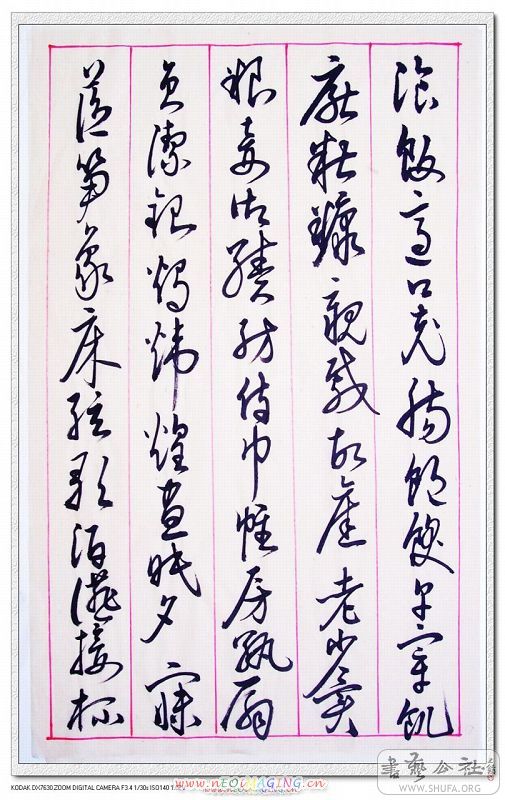 湌飯適口充腸飽飫烹宰飢
厭糟糠親戚故舊老少異
糧妾御績紡侍巾帷房紈扇
員潔銀燭煒煌晝眠夕寐
藍笋象床絃歌酒讌接杯
書藝公社
WWW.SHUFA.ORG
KODAK DX7630 ZOOM DIGITAL CAMERA F3.4 1/30s ISO140
www.nEOiMAGING.cn